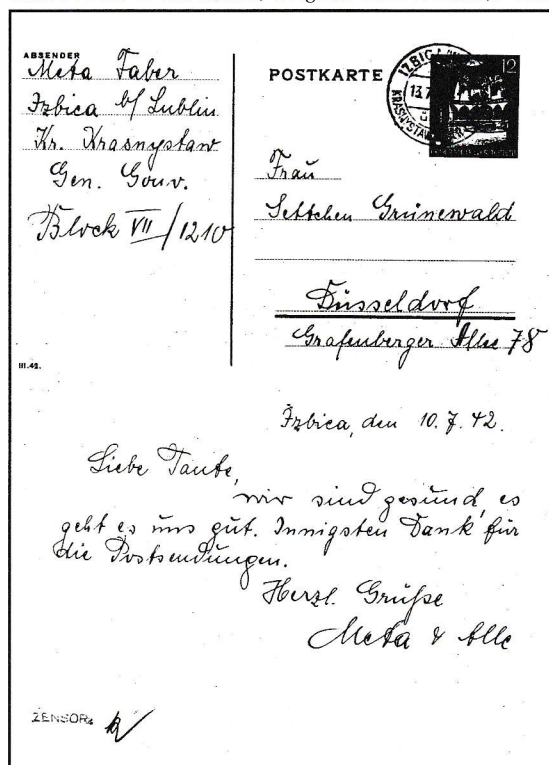 ABSENDER
Meta Faber
Izbica b/ Lublin
Kr. Krasnystaw
Gen. Gouv.
Block VII/1210
POSTKARTE
IZBICA
13.7
KRASNYSTAW
12
Frau
Settchen Grünewald
Düsseldorf
Grafenberger Allee 78
III.42.
Izbica, den 10.7.42.
Liebe Tante,
wir sind gesund, es
geht es uns gut. Innigsten Dank für
die Postsendungen.
Herzl. Grüße
Meta & Alle
ZENSOR: